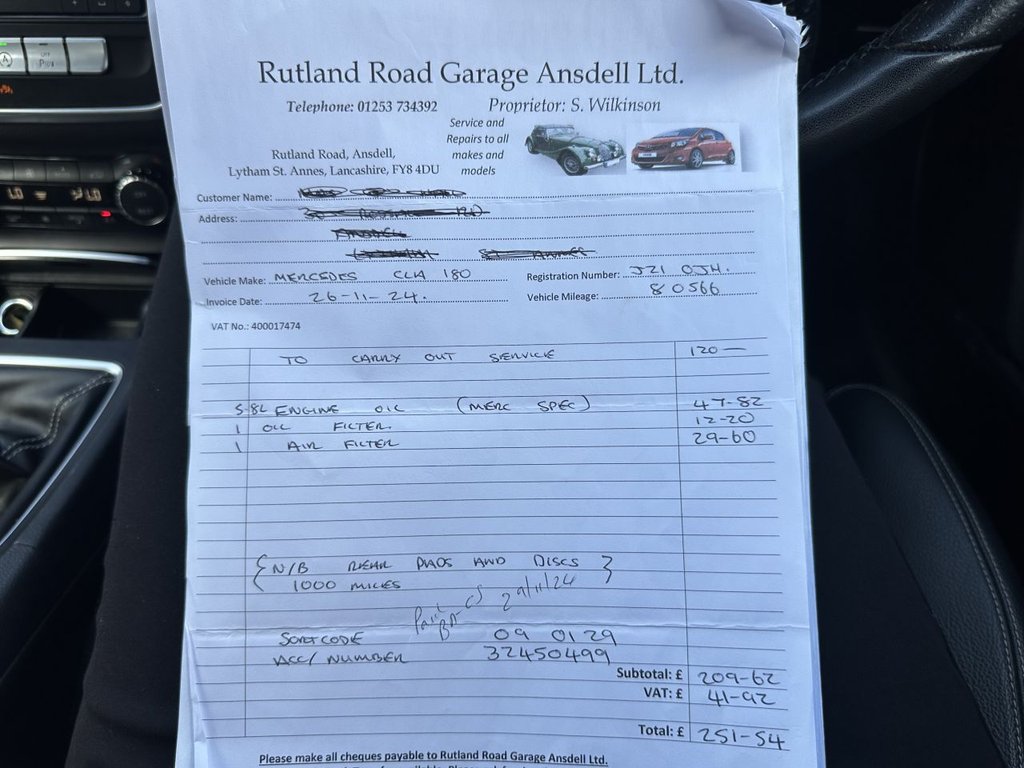 Rutland Road Garage Ansdell Ltd.
Telephone: 01253 734392
Proprietor: S. Wilkinson
Service and
Repairs to all
makes and
models
Rutland Road, Ansdell,
Lytham St. Annes, Lancashire, FY8 4DU
Customer Name:
Address:
Vehicle Make: MERCEDES CLA 180
Registration Number: J21 OJH.
Invoice Date: 26-11-24.
Vehicle Mileage: 80566
VAT No.: 400017474
TO CARRY OUT SERVICE 120 —
5.8L ENGINE OIL (MERC SPEC) 47-82
1 OIL FILTER. 12-20
1 AIR FILTER 29-60
{N/B REAR PADS AND DISCS }
1000 MILES
Paid 29/11/24
SORTCODE 09 0129
ACC/NUMBER 32450499
Subtotal: £ 209-62
VAT: £ 41-92
Total: £ 251-54
Please make all cheques payable to Rutland Road Garage Ansdell Ltd.